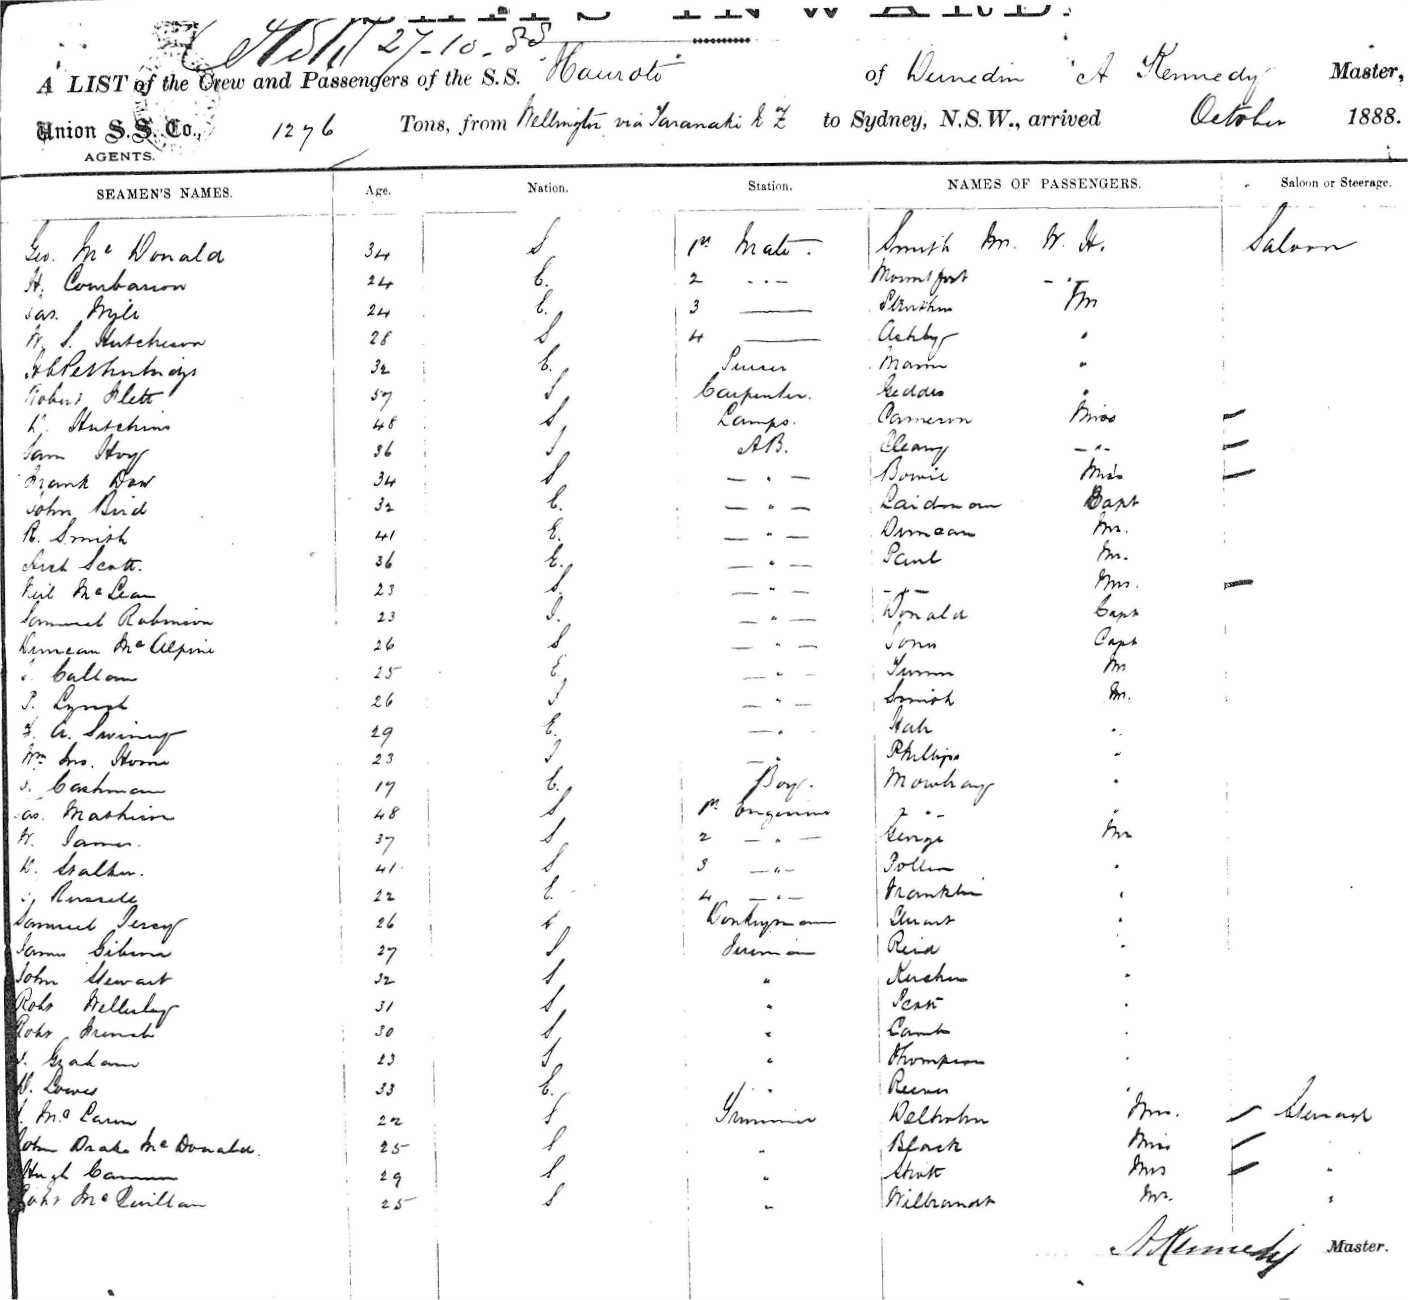 SHIPS INWARD.
27-10-88
A LIST of the Crew and Passengers of the S.S. "Hauroto" of Dunedin A Kennedy Master,
Union S.S. Co., 1276 Tons, from Wellington via Taranaki N Z to Sydney, N.S.W., arrived October 1888.
AGENTS.
SEAMEN'S NAMES. Age. Nation. Station. NAMES OF PASSENGERS. Saloon or Steerage.
Geo. Mc Donald 34 S 1st Mate. Smith Mr. W. H. Saloon
H. 24 E. 2 - " - Mountfort - " -
Jas. 24 E. 3 —— Mr
W. S. Hutcheson 28 S 4 —— Ashby "
32 E. Purser Mann "
Robert Flett 57 S Carpenter. Geddes "
Hutchins 48 S Lamps. Cameron Miss —
Sam Hoy 36 I AB. Cleary — " — —
Frank Dow 34 S — " — Bowie Miss —
John Bird 32 E. — " — Laidman Capt
R. Smith 41 E. — " — Duncan Mr.
Arch Scott. 36 E. — " — Paul Mr.
Neil McLean 23 S. — " — - " - Mrs. —
Samuel Robinson 23 I. — " — Donald Capt
Duncan Mc Alpine 26 S — " — Capt
Callam 25 E — " — Mr
P. Lynch 26 I — " — Smith Mr.
A. 29 E. — " — "
Wm Jno. Horne 23 I — " — Phillips "
Cashman 17 E. Boy. Mowbray "
Jas. Mathison 48 S 1st Engineer - " - "
W. James. 37 S 2 — " — George Mr
Stalker. 41 S 3 — " — "
Russell 22 E. 4 — " — Franklin "
Samuel 26 Donkeyman Stuart "
James Gibson 27 S Fireman Reid "
John Stewart 32 S " "
Robt Wellesley 31 S " "
Robt French 30 S " Lamb "
Graham 23 I " Thompson "
Lowes 33 E. " Reeves "
Mc Laren 22 S Trimmer Mrs. — Steerage
John Drake Mc Donald. 25 S " Black Miss — "
Hugh Cameron 29 S " Mrs — "
Robt Mc Quillan 25 S " Mr. "
A Kennedy Master.